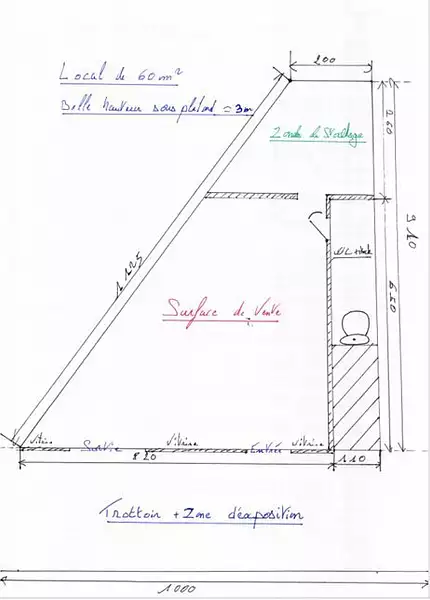 200
Local de 60 m²
Belle hauteur sous plafond = 3m
Zone de Stockage
260
310
1125
WC + lavabo
650
Surface de Vente
Vitrine
Sortie
Vitrine
Entrée
Vitrine
820
110
Trottoir + Zone d'exposition
1000